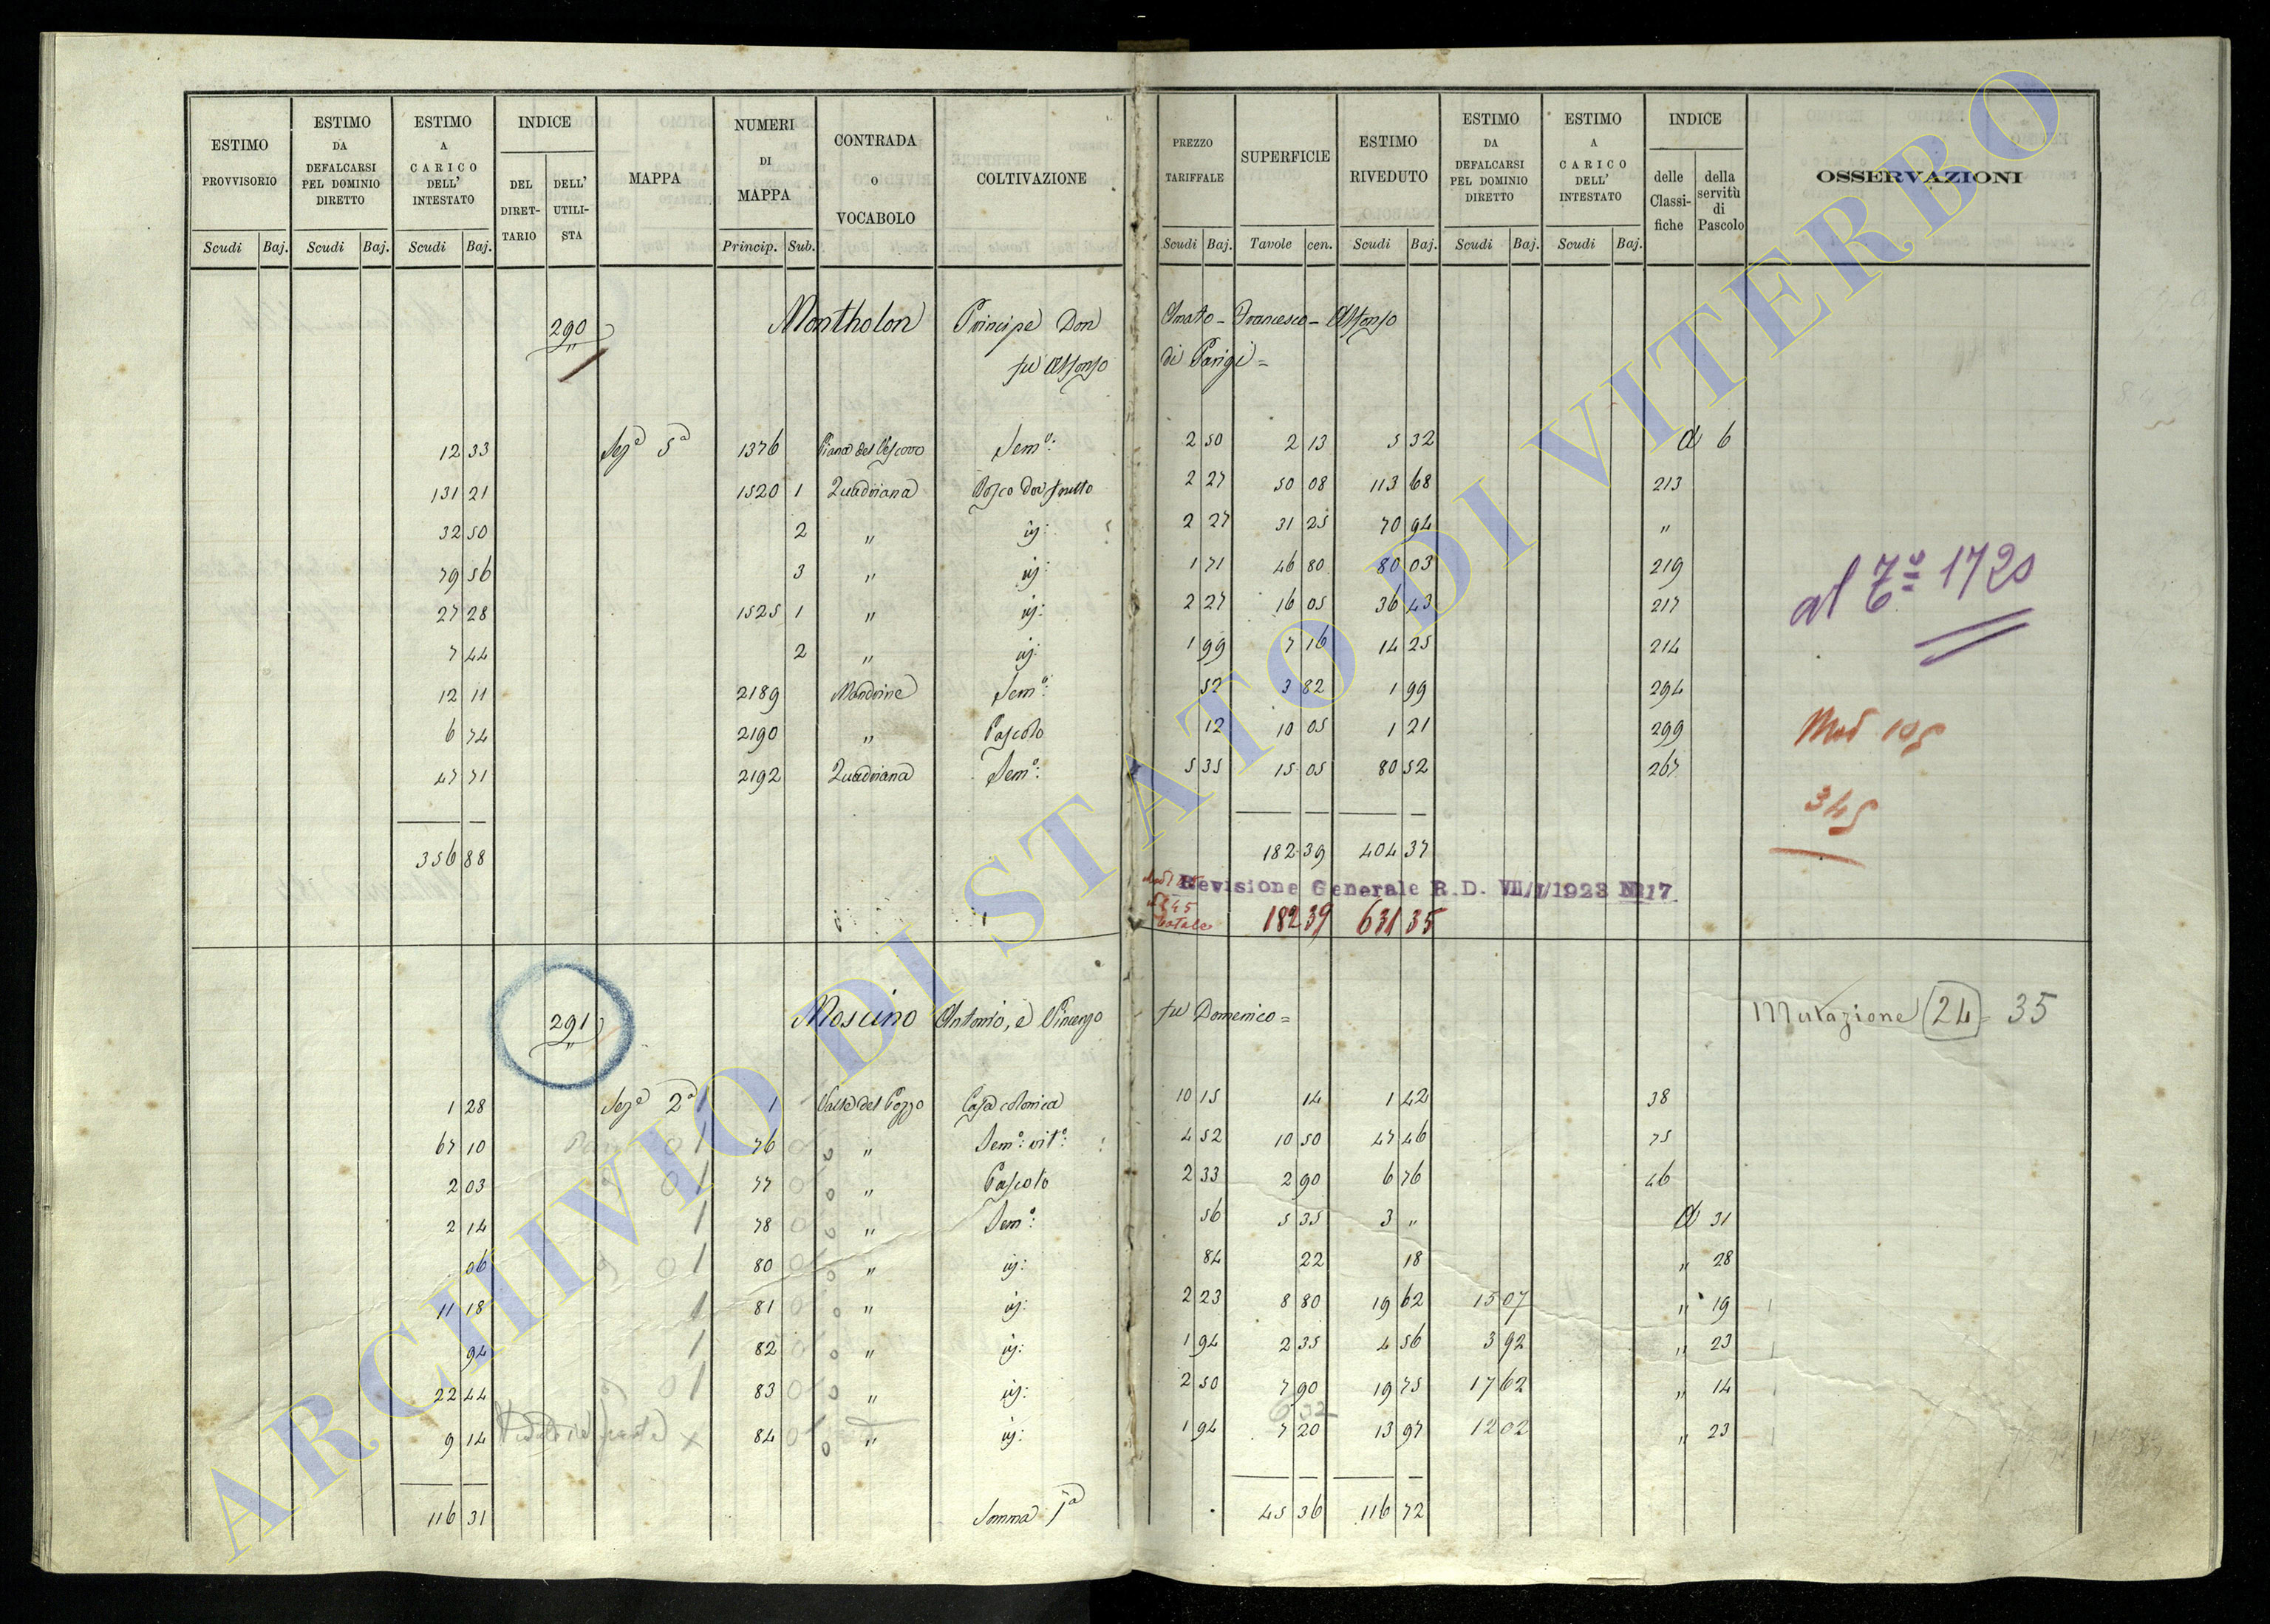 ESTIMO PROVVISORIO
ESTIMO DA DEFALCARSI PEL DOMINIO DIRETTO
ESTIMO A CARICO DELL' INTESTATO
INDICE
DEL DIRET-TARIO
DELL' UTILI-STA
MAPPA
NUMERI DI MAPPA
CONTRADA O VOCABOLO
COLTIVAZIONE
PREZZO TARIFFALE
SUPERFICIE
ESTIMO RIVEDUTO
ESTIMO DA DEFALCARSI PEL DOMINIO DIRETTO
ESTIMO A CARICO DELL' INTESTATO
INDICE
delle Classi-fiche
della servitù di Pascolo
OSSERVAZIONI
Scudi Baj. Scudi Baj. Scudi Baj. Princip. Sub. Scudi Baj. Tavole cen. Scudi Baj. Scudi Baj. Scudi Baj.
290 Montholon Principe Don Onato - Francesco - Alfonso
fu Alfonso di Parigi =
12 33 Sez.a 5a 1376 Piana del Vescovo Sem.o: 2 50 2 13 5 32 d 6
131 21 1520 1 Quadriana Bosco dol frutto 2 27 50 08 113 68 213
32 50 2 " ig: 2 27 31 25 70 94 "
79 56 3 " ig: 1 71 46 80 80 03 219
27 28 1525 1 " ig: 2 27 16 05 36 43 217
7 44 2 " ig: 1 99 7 16 14 25 214
12 11 2189 Mandrine Sem.o: 52 3 82 1 99 294
6 74 2190 " Pascolo 12 10 05 1 21 299
47 71 2192 Quadriana Sem.o: 5 35 15 05 80 52 267
al 7o 1720
Mod 105
345
356 88 182 39 404 37
Revisione Generale R.D. VII/I/1923 N 17
totale 182 39 631 35
291 Moscino Antonio, e Vincenzo fu Domenico = Mutazione 24 = 35
1 28 Sez.a 2a 1 Valle del Pozzo Casa colonica 10 15 14 1 42 38
67 10 76 " Sem.o: vit.o: 4 52 10 50 47 46 75
2 03 77 " Pascolo 2 33 2 90 6 76 46
2 14 78 " Sem.o: 56 5 35 3 " d 31
06 80 " ig: 84 22 18 " 28
11 18 81 " ig: 2 23 8 80 19 62 15 07 " 19
94 82 " ig: 1 94 2 35 4 56 3 92 " 23
22 44 83 " ig: 2 50 7 90 19 75 17 62 " 14
6 32
9 14 84 " ig: 1 94 7 20 13 97 12 02 " 23
116 31 Somma 1a 45 36 116 72
ARCHIVIO DI STATO DI VITERBO